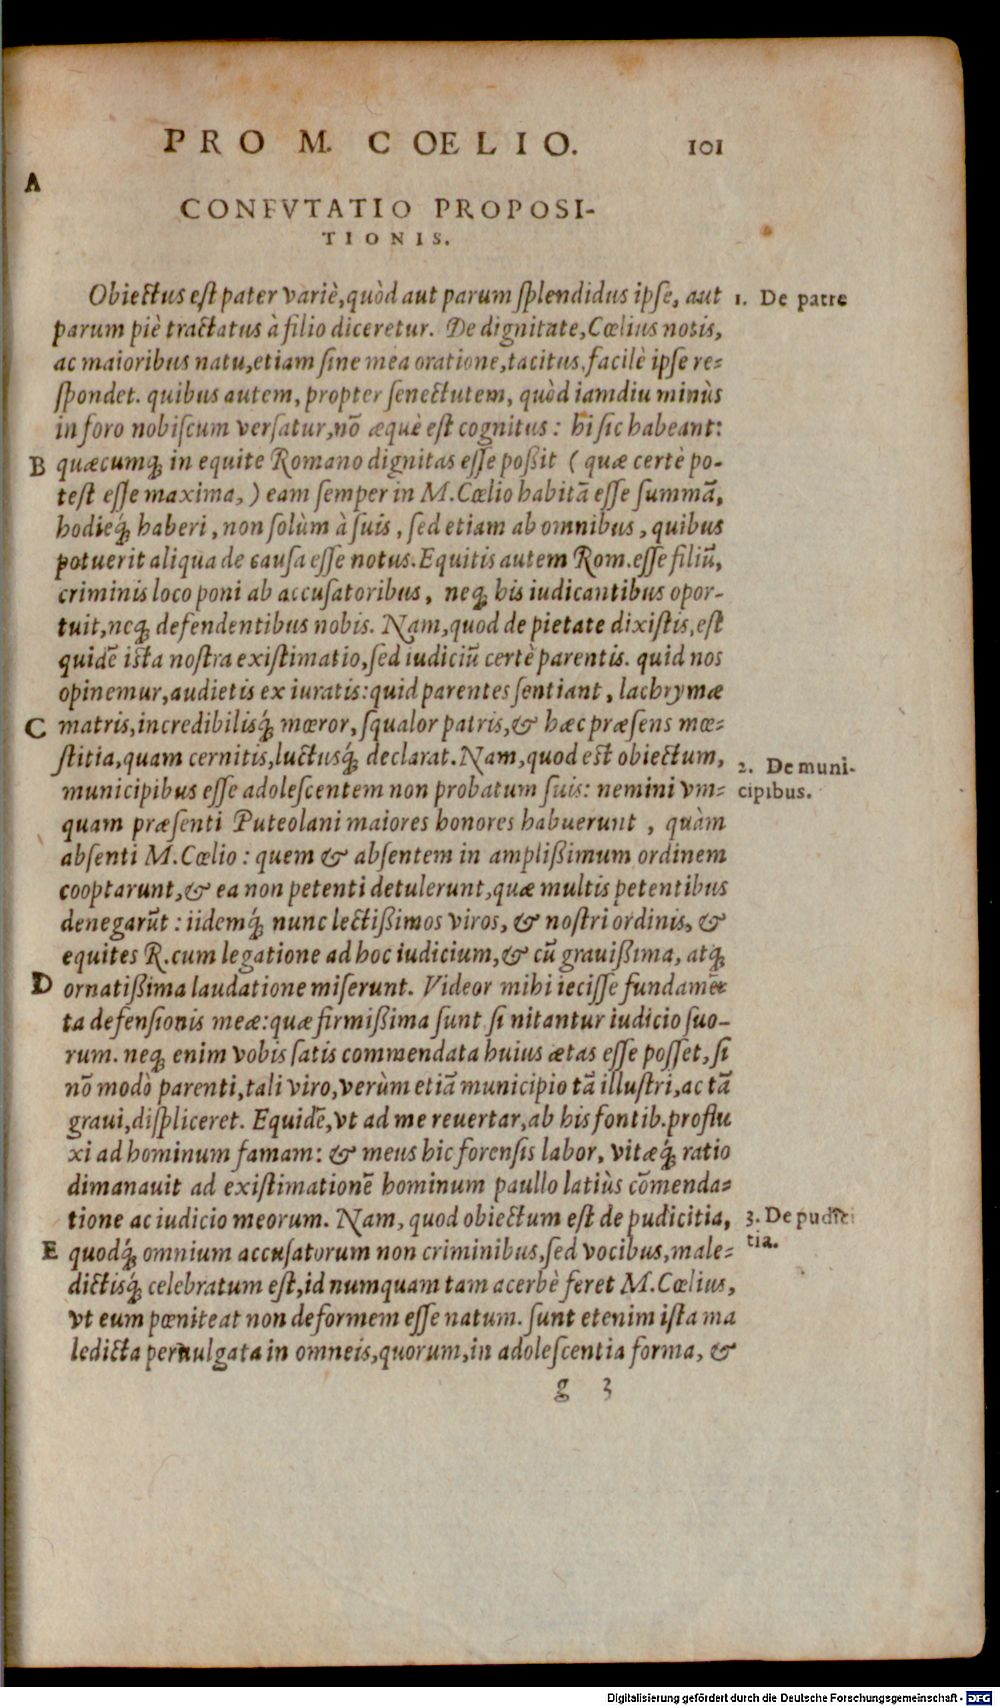 PRO M. COELIO. 101
A
CONFVTATIO PROPOSI-
TIONIS.
Obiectus est pater variè, quòd aut parum splendidus ipse, aut
1. De patre
parum piè tractatus à filio diceretur. De dignitate, Cœlius notis,
ac maioribus natu, etiam sine mea oratione, tacitus, facilè ipse re-
spondet. quibus autem, propter senectutem, quòd iamdiu minùs
in foro nobiscum versatur, nō æquè est cognitus: hi sic habeant:
B
quæcumq; in equite Romano dignitas esse poßit (quæ certè po-
test esse maxima,) eam semper in M. Cœlio habitā esse summā,
hodieq́; haberi, non solùm à suis, sed etiam ab omnibus, quibus
potuerit aliqua de causa esse notus. Equitis autem Rom. esse filiū,
criminis loco poni ab accusatoribus, neq; his iudicantibus opor-
tuit, neq; defendentibus nobis. Nam, quod de pietate dixistis, est
quidē ista nostra existimatio, sed iudiciū certè parentis. quid nos
opinemur, audietis ex iuratis: quid parentes sentiant, lachrymæ
C
matris, incredibilisq́; mœror, squalor patris, & hæc præsens mœ-
stitia, quam cernitis, luctusq́; declarat. Nam, quod est obiectum,
2. De muni-
cipibus.
municipibus esse adolescentem non probatum suis: nemini vm-
quam præsenti Puteolani maiores honores habuerunt, quàm
absenti M. Cœlio: quem & absentem in amplißimum ordinem
cooptarunt, & ea non petenti detulerunt, quæ multis petentibus
denegarūt: iidemq́; nunc lectißimos viros, & nostri ordinis, &
equites R. cum legatione ad hoc iudicium, & cū grauißima, atq;
D
ornatißima laudatione miserunt. Videor mihi iecisse fundamē-
ta defensionis meæ: quæ firmißima sunt si nitantur iudicio suo-
rum. neq; enim vobis satis commendata huius ætas esse posset, si
nō modò parenti, tali viro, verùm etiā municipio tā illustri, ac tā
graui, displiceret. Equidē, vt ad me reuertar, ab his fontib. proflu
xi ad hominum famam: & meus hic forensis labor, vitæq́; ratio
dimanauit ad existimationē hominum paullo latiùs cōmenda-
tione ac iudicio meorum. Nam, quod obiectum est de pudicitia,
3. De pudici
tia.
E
quodq́; omnium accusatorum non criminibus, sed vocibus, male-
dictisq́; celebratum est, id numquam tam acerbè feret M. Cœlius,
vt eum pœniteat non deformem esse natum. sunt etenim ista ma
ledicta peruulgata in omneis, quorum, in adolescentia forma, &
g 3
Digitalisierung gefördert durch die Deutsche Forschungsgemeinschaft - DFG